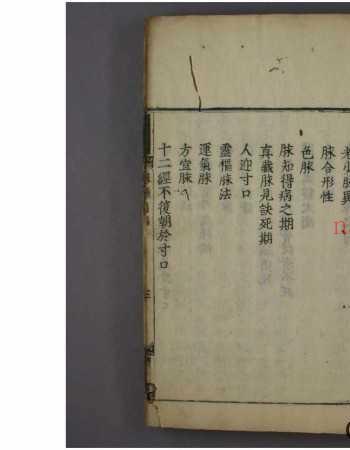 老少脉異
脉合形性
色脉
脉知得病之期
真蔵脉見訣死期
人迎寸口
靈樞脉法
運氣脉
方宜脉
十二經不復朝於寸口